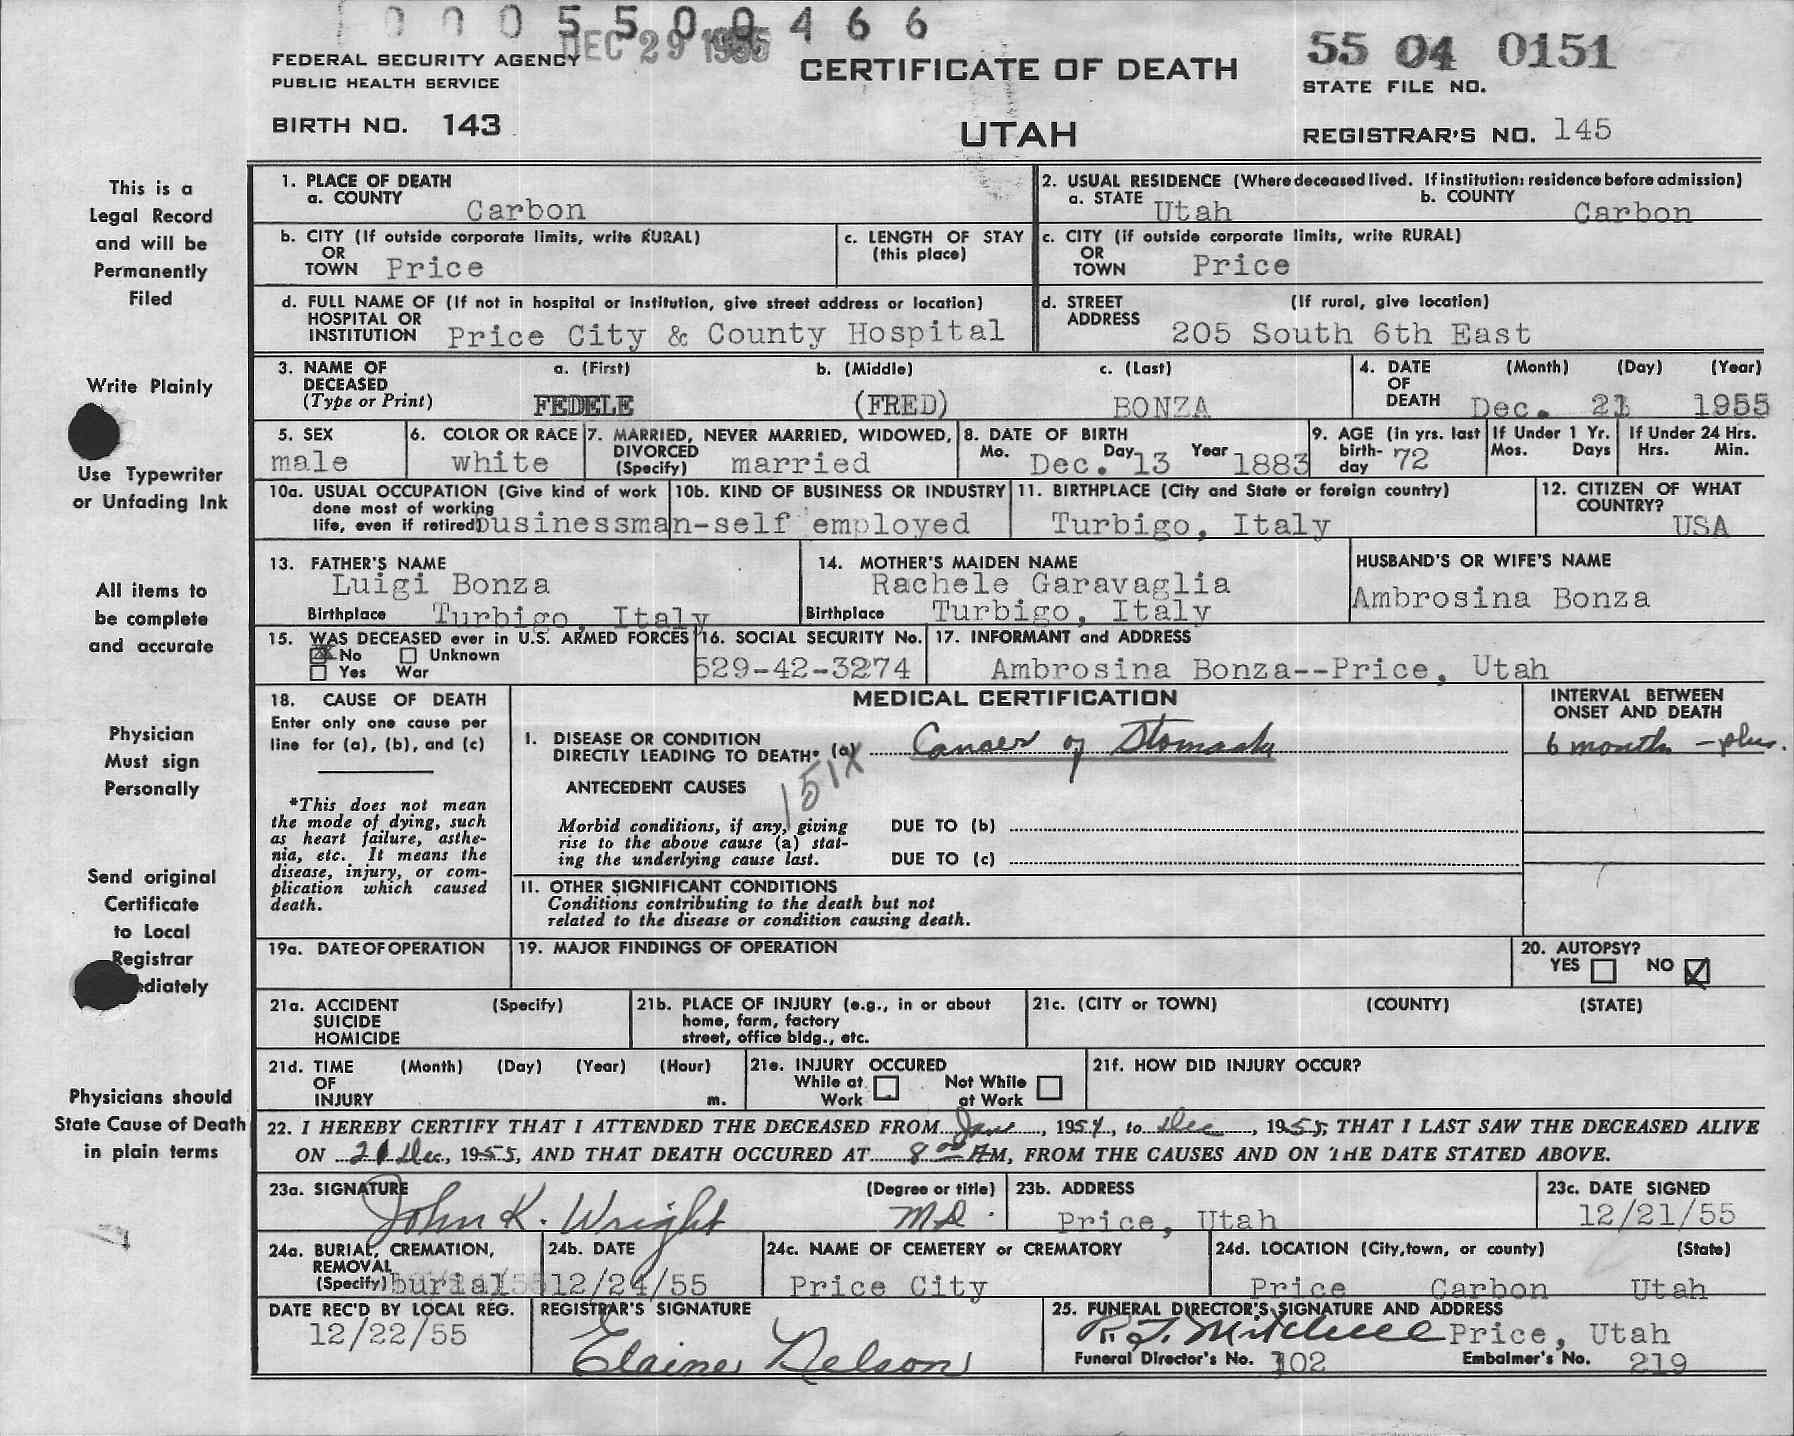 0 0 0 5 5 0 0 4 6 6
DEC 29 1955
FEDERAL SECURITY AGENCY
PUBLIC HEALTH SERVICE
CERTIFICATE OF DEATH
55 04 0151
STATE FILE NO.
BIRTH NO. 143
UTAH
REGISTRAR'S NO. 145
This is a
Legal Record
and will be
Permanently
Filed
Write Plainly
Use Typewriter
or Unfading Ink
All items to
be complete
and accurate
Physician
Must sign
Personally
Send original
Certificate
to Local
Registrar
ediately
Physicians should
State Cause of Death
in plain terms
1. PLACE OF DEATH
a. COUNTY Carbon
2. USUAL RESIDENCE (Where deceased lived. If institution: residence before admission)
a. STATE Utah b. COUNTY Carbon
b. CITY (If outside corporate limits, write RURAL)
OR
TOWN Price
c. LENGTH OF STAY
(this place)
c. CITY (if outside corporate limits, write RURAL)
OR
TOWN Price
d. FULL NAME OF (If not in hospital or institution, give street address or location)
HOSPITAL OR
INSTITUTION Price City & County Hospital
d. STREET (If rural, give location)
ADDRESS 205 South 6th East
3. NAME OF a. (First) b. (Middle) c. (Last)
DECEASED
(Type or Print) FEDELE (FRED) BONZA
4. DATE (Month) (Day) (Year)
OF
DEATH Dec. 21 1955
5. SEX
male
6. COLOR OR RACE
white
7. MARRIED, NEVER MARRIED, WIDOWED,
DIVORCED
(Specify) married
8. DATE OF BIRTH
Mo. Dec. Day 13 Year 1883
9. AGE (in yrs. last
birth-
day 72
If Under 1 Yr.
Mos. Days
If Under 24 Hrs.
Hrs. Min.
10a. USUAL OCCUPATION (Give kind of work
done most of working
life, even if retired)
10b. KIND OF BUSINESS OR INDUSTRY
businessman-self employed
11. BIRTHPLACE (City and State or foreign country)
Turbigo, Italy
12. CITIZEN OF WHAT
COUNTRY?
USA
13. FATHER'S NAME
Luigi Bonza
Birthplace Turbigo, Italy
14. MOTHER'S MAIDEN NAME
Rachele Garavaglia
Birthplace Turbigo, Italy
HUSBAND'S OR WIFE'S NAME
Ambrosina Bonza
15. WAS DECEASED ever in U.S. ARMED FORCES
No Unknown
Yes War
16. SOCIAL SECURITY No.
529-42-3274
17. INFORMANT and ADDRESS
Ambrosina Bonza--Price, Utah
18. CAUSE OF DEATH
Enter only one cause per
line for (a), (b), and (c)
*This does not mean
the mode of dying, such
as heart failure, asthe-
nia, etc. It means the
disease, injury, or com-
plication which caused
death.
MEDICAL CERTIFICATION
INTERVAL BETWEEN
ONSET AND DEATH
I. DISEASE OR CONDITION
DIRECTLY LEADING TO DEATH* (a) Cancer of Stomach
6 months - plus.
151X
ANTECEDENT CAUSES
Morbid conditions, if any, giving
rise to the above cause (a) stat-
ing the underlying cause last.
DUE TO (b)
DUE TO (c)
II. OTHER SIGNIFICANT CONDITIONS
Conditions contributing to the death but not
related to the disease or condition causing death.
19a. DATE OF OPERATION
19. MAJOR FINDINGS OF OPERATION
20. AUTOPSY?
YES NO
21a. ACCIDENT (Specify)
SUICIDE
HOMICIDE
21b. PLACE OF INJURY (e.g., in or about
home, farm, factory
street, office bldg., etc.
21c. (CITY or TOWN) (COUNTY) (STATE)
21d. TIME (Month) (Day) (Year) (Hour)
OF
INJURY m.
21e. INJURY OCCURED
While at Work Not While at Work
21f. HOW DID INJURY OCCUR?
22. I HEREBY CERTIFY THAT I ATTENDED THE DECEASED FROM Jan, 1954, to Dec, 1955, THAT I LAST SAW THE DECEASED ALIVE
ON 21 Dec, 1955, AND THAT DEATH OCCURED AT 8 00 AM, FROM THE CAUSES AND ON THE DATE STATED ABOVE.
23a. SIGNATURE (Degree or title)
John K. Wright MD.
23b. ADDRESS
Price, Utah
23c. DATE SIGNED
12/21/55
24a. BURIAL, CREMATION,
REMOVAL
(Specify) burial
24b. DATE
12/24/55
24c. NAME OF CEMETERY or CREMATORY
Price City
24d. LOCATION (City, town, or county) (State)
Price Carbon Utah
DATE REC'D BY LOCAL REG.
12/22/55
REGISTRAR'S SIGNATURE
Elaine Nelson
25. FUNERAL DIRECTOR'S SIGNATURE AND ADDRESS
R. J. Mitchell Price, Utah
Funeral Director's No. 102 Embalmer's No. 219